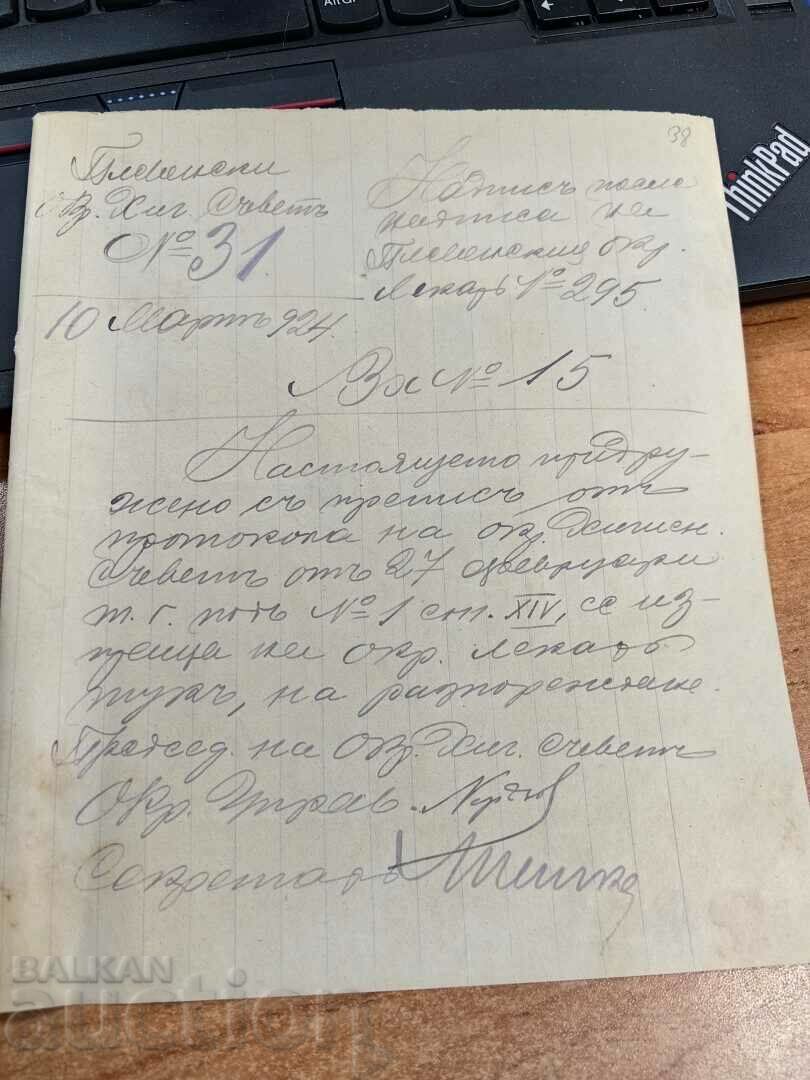 AltGr
ThinkPad
38
Плевенски
Окр. Хиг. Съветъ
№ 31
10 Мартъ 924.
Надписъ после
надписа на
Плевенския окр.
Лекарь № 295.
Вх № 15
Настоящето придру-
жено съ преписъ отъ
протокола на окр. Хигиен.
Съветъ отъ 27 февруари
т. г. подъ № 1 ст. XIV, се из-
праща на окр. лекарь
тукъ, на разпореждане.
Председ. на Окр. Хиг. Съветъ
Окр. Управ.
Секретарь
BALKAN
auction